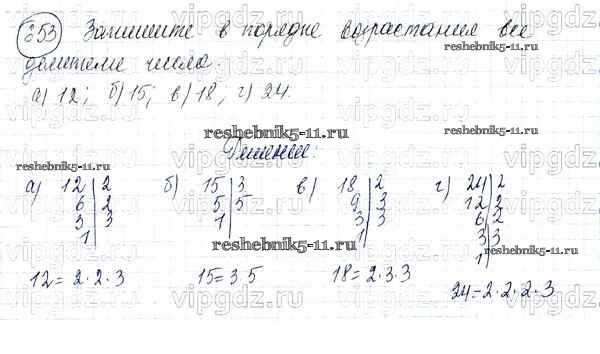 653 Запишите в порядке возрастания все
делители числа.
а) 12; б) 15; в) 18; г) 24.
Решение.
а) 12 | 2 б) 15 | 3 в) 18 | 2 г) 24 | 2
6 | 2 5 | 5 9 | 3 12 | 2
3 | 3 1 | 3 | 3 6 | 2
1 | 1 | 3 | 3
1 |
12 = 2·2·3 15 = 3·5 18 = 2·3·3 24 = 2·2·2·3
vipgdz.ru
reshebnik5-11.ru